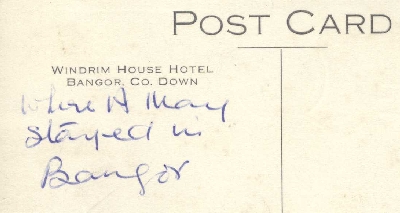 POST CARD
WINDRIM HOUSE HOTEL
BANGOR, CO. DOWN
Where A May
stayed in
Bangor